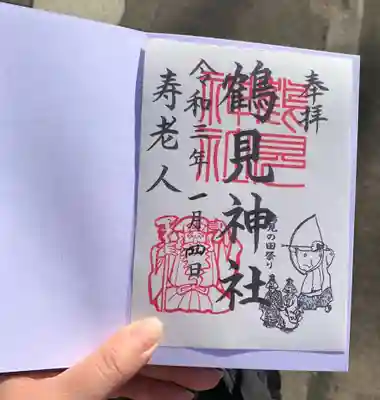 奉拝
鶴見の田祭り
鶴見神社
鶴見
神社
令和三年一月四日
寿老人